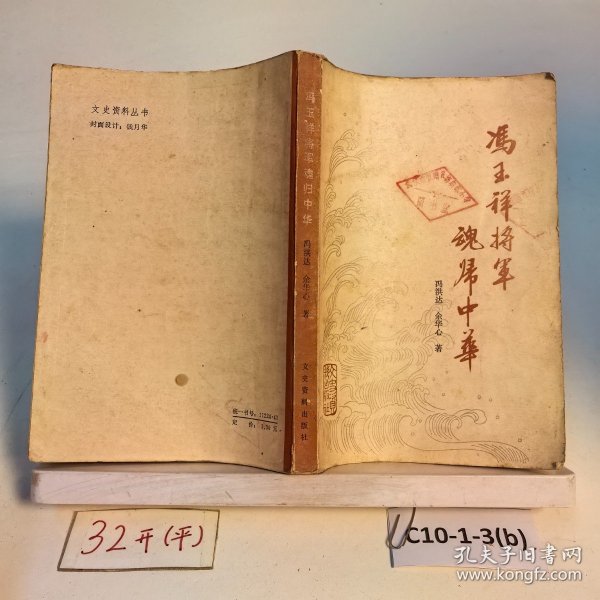 文史资料丛书
封面设计:钱月华
统一书号:11224·43
定 价:
冯玉祥将军魂归中华
冯洪达 余华心 著
文史资料出版社
馮玉祥将军
魂归中華
冯洪达 余华心 著
32开(平)
C10-1-3(b)
孔夫子旧书网
www.kongfz.com